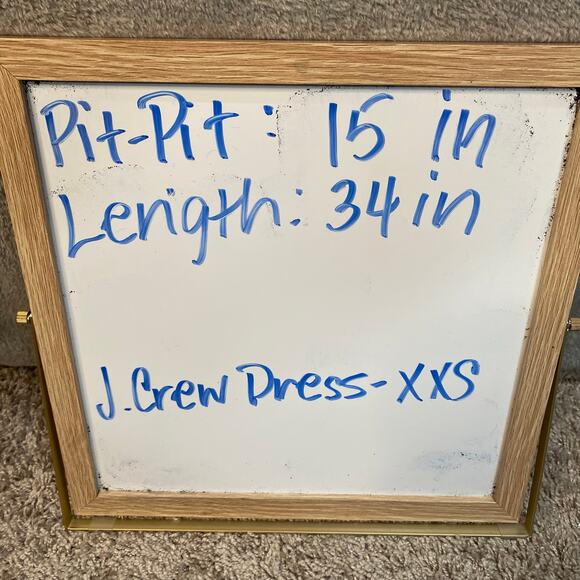 Pit-Pit: 15 in
Length: 34 in
J. Crew Dress - XXS